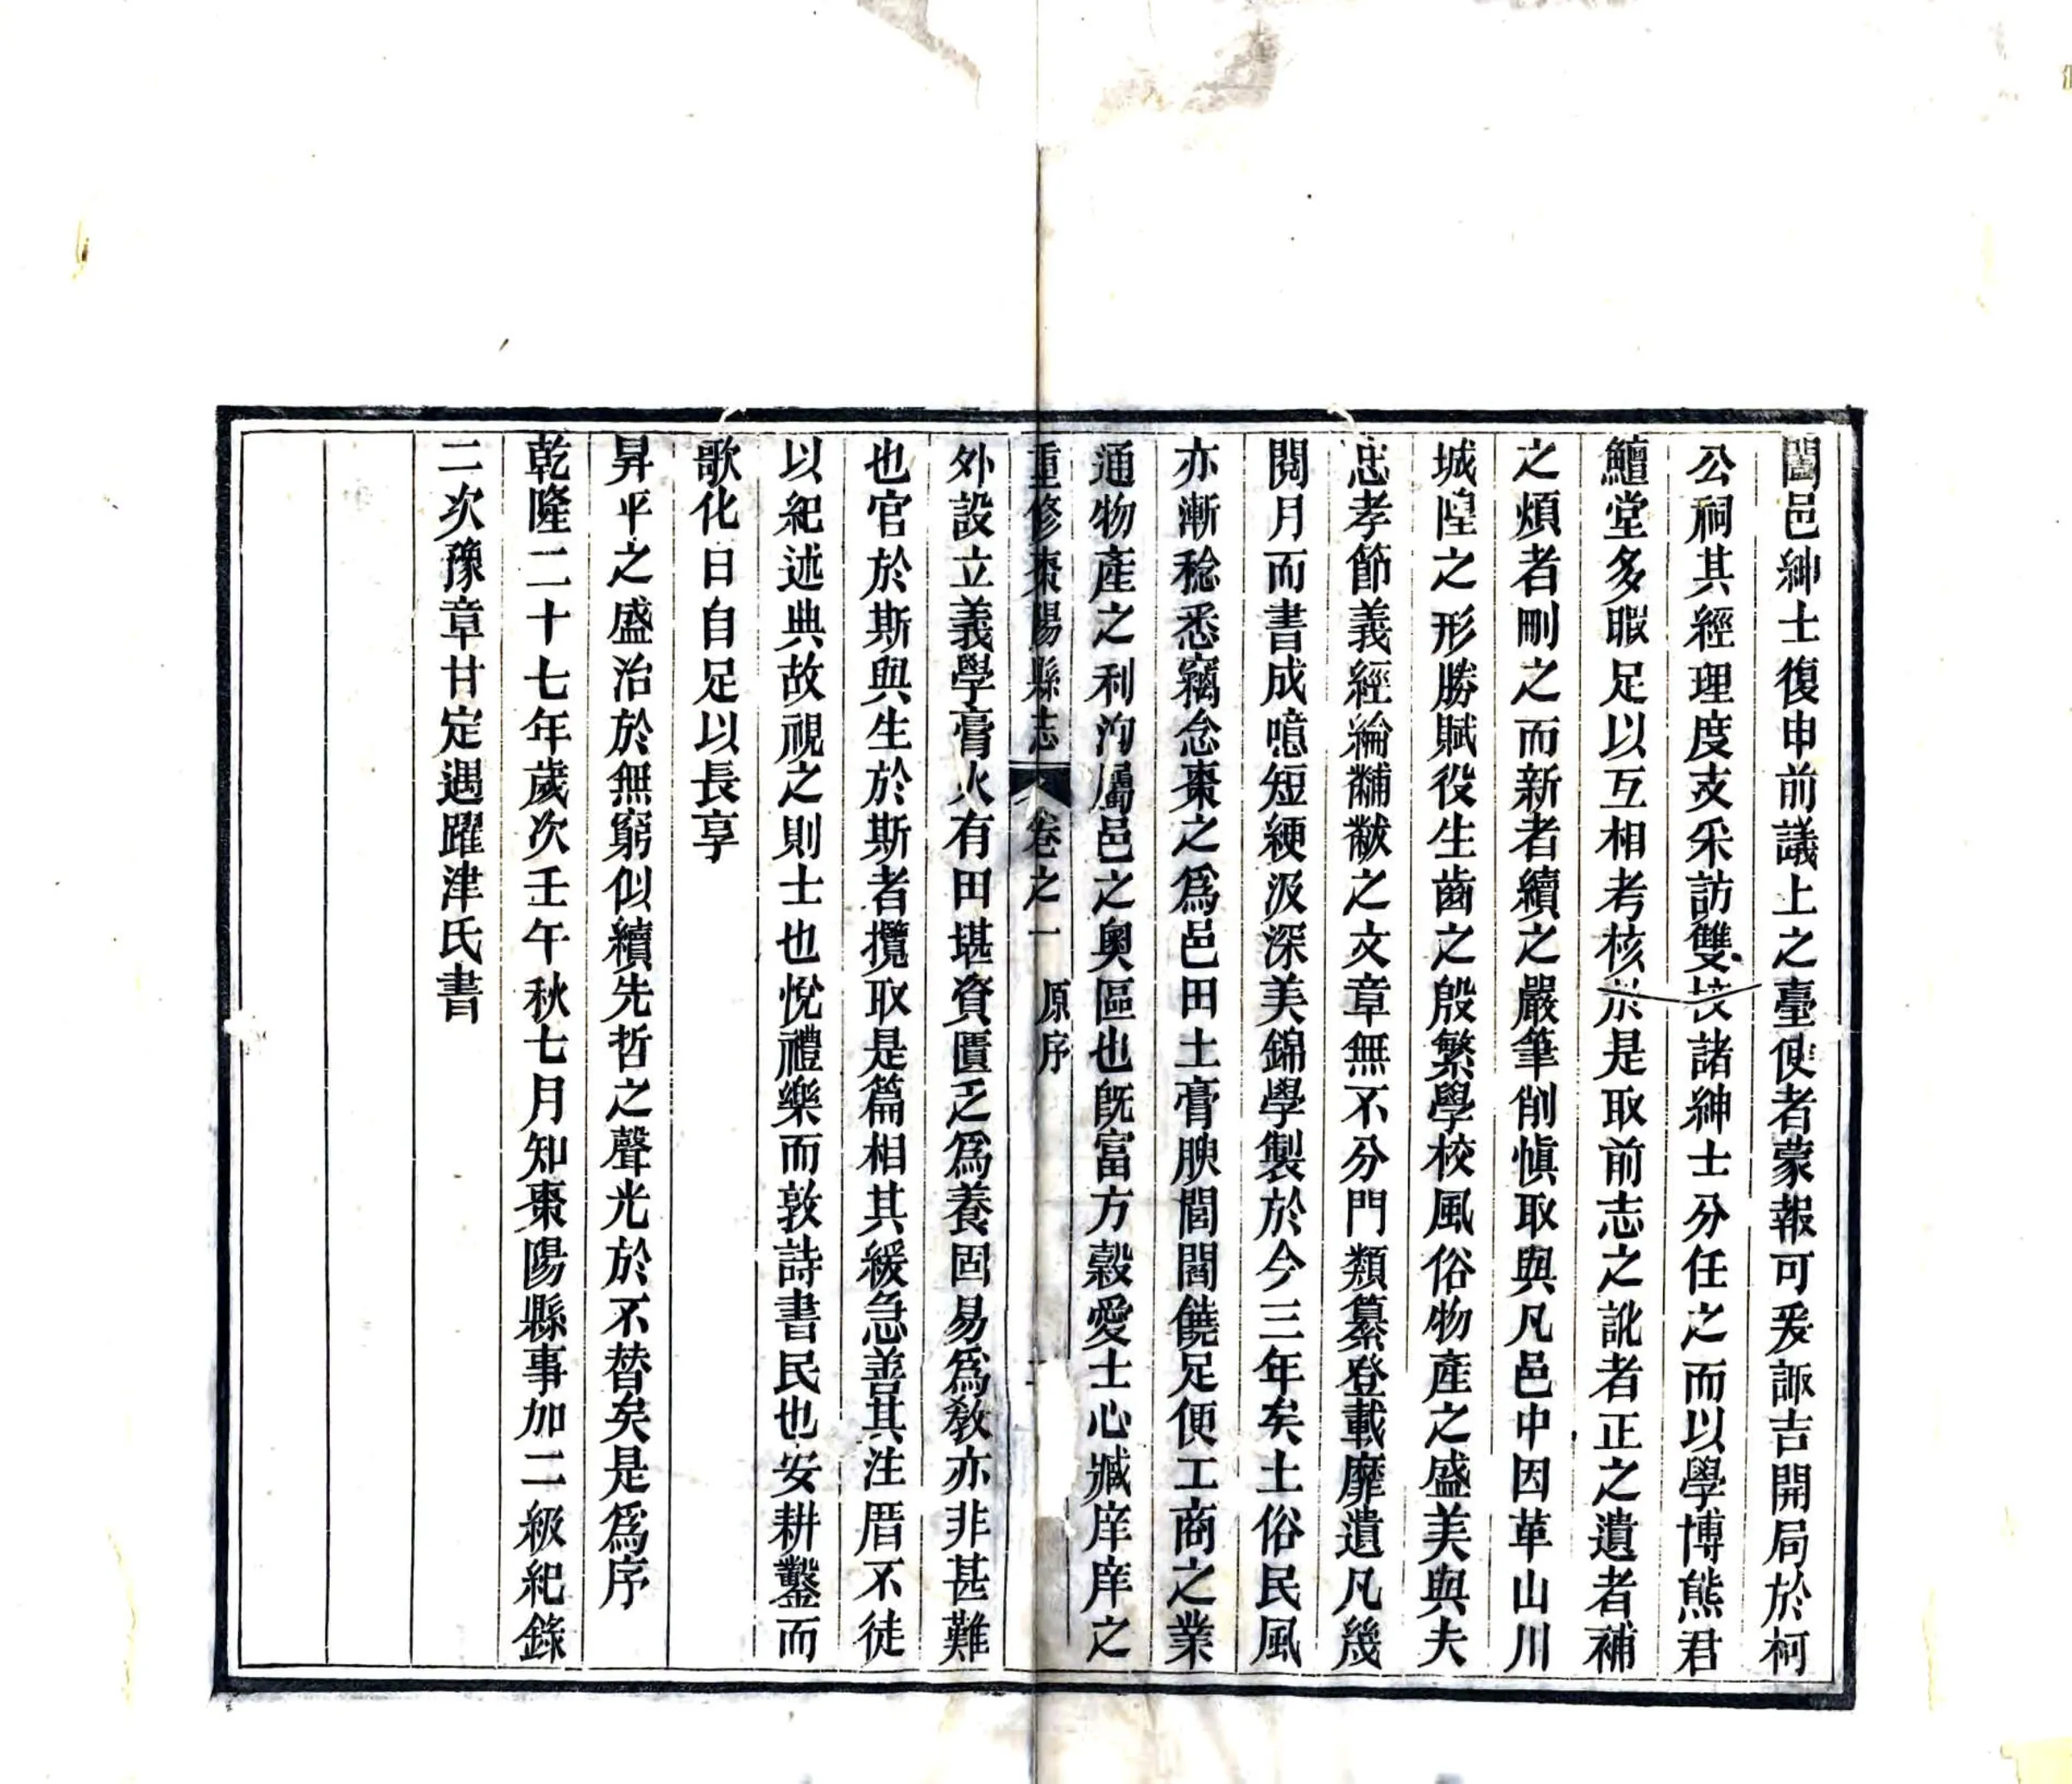 闔邑紳士復申前議上之臺使者蒙報可爰諏吉開局於柯
公祠其經理度支采訪雙校諸紳士分任之而以學博熊君
鱣堂多暇足以互相考核於是取前志之訛者正之遺者補
之煩者刪之而新者續之嚴筆削慎取與凡邑中因革山川
城隍之形勝賦役生齒之殷繁學校風俗物產之盛美與夫
忠孝節義經綸黼黻之文章無不分門類纂登載靡遺凡幾
閱月而書成噫短綆汲深美錦學製於今三年矣土俗民風
亦漸稔悉竊念棗之爲邑田土膏腴閭閻饒足便工商之業
通物產之利洵屬邑之奧區也既富方穀愛士心臧庠庠之
重修棗陽縣志 卷之一 原序
外設立義學膏火有田堪資匱乏爲養固易爲教亦非甚難
也官於斯與生於斯者攬取是篇相其緩急善其注厝不徒
以紀述典故視之則士也悅禮樂而敦詩書民也安耕鑿而
歌化日自足以長享
昇平之盛治於無窮似續先哲之聲光於不替矣是爲序
乾隆二十七年歲次壬午秋七月知棗陽縣事加二級紀錄
二次豫章甘定遇躍津氏書